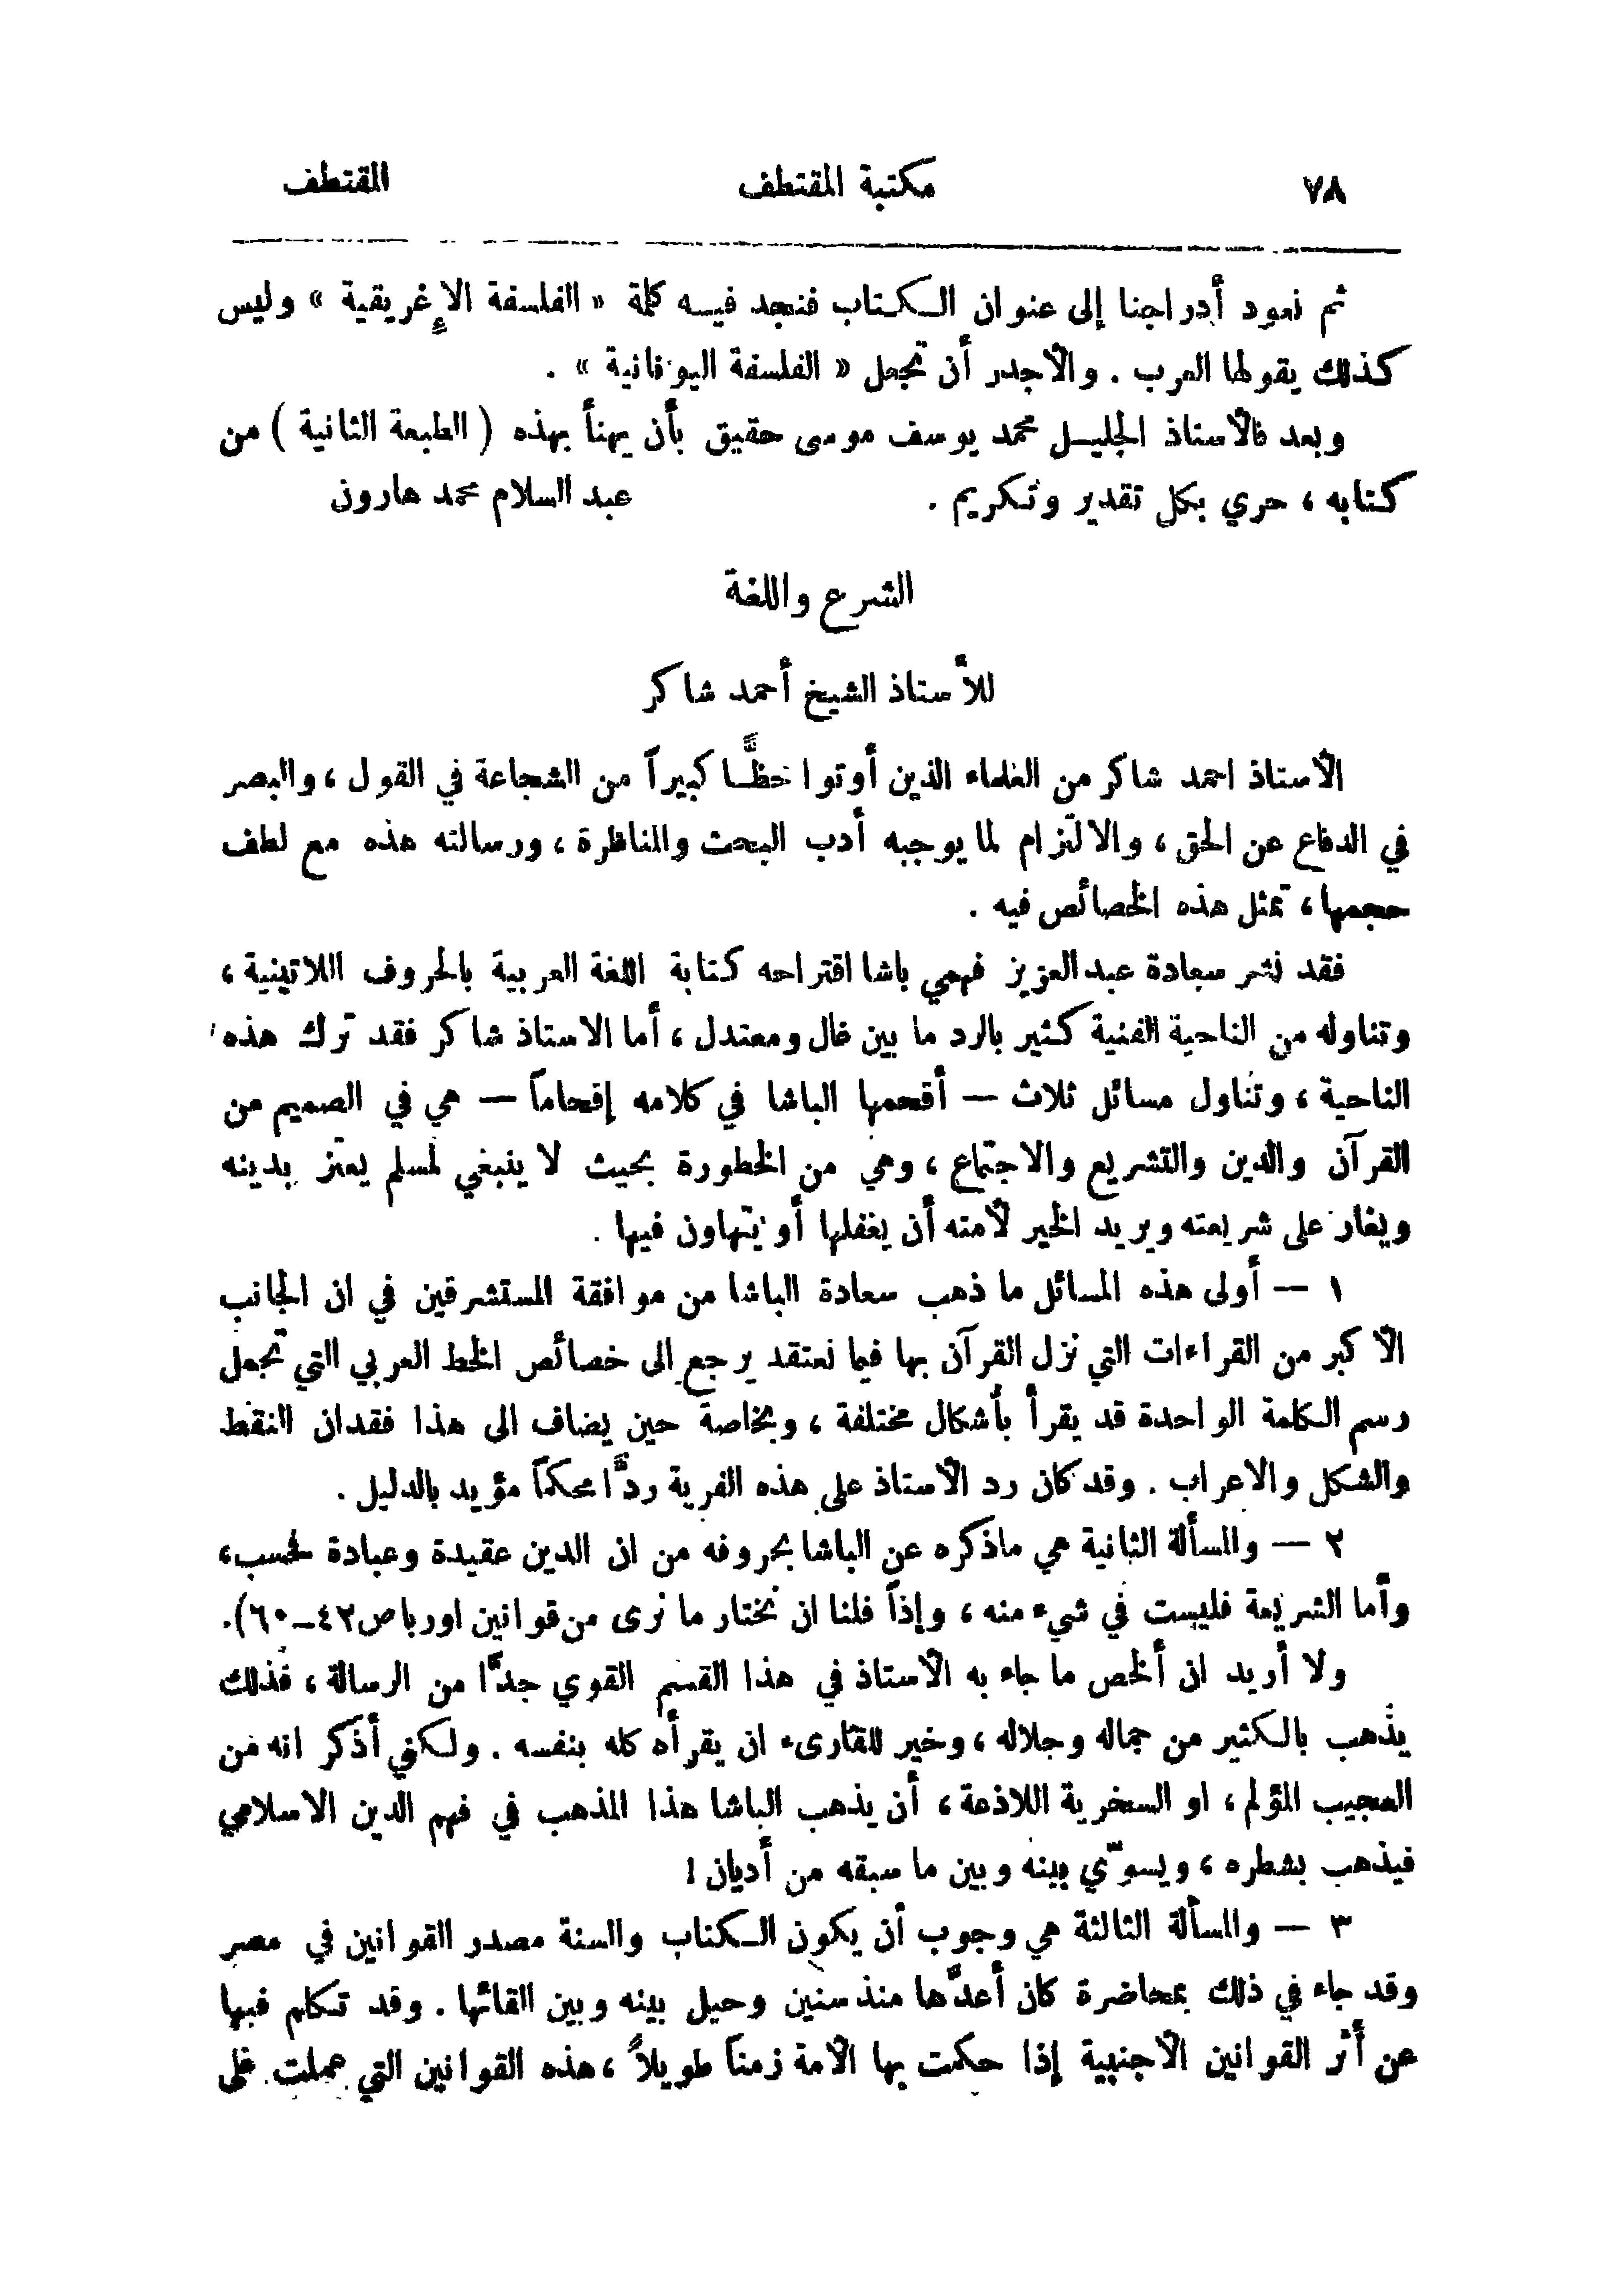 ٧٨ مكتبة المقتطف المقتطف
ثم نعود أدراجنا إلى عنوان الكتاب فنجد فيه كلمة « الفلسفة الإغريقية » وليس
كذلك يقولها العرب . والأجدر أن تجعل « الفلسفة اليونانية » .
وبعد فالأستاذ الجليل محمد يوسف موسى حقيق بأن يهنأ بهذه ( الطبعة الثانية ) من
كتابه ، حري بكل تقدير وتكريم . عبد السلام محمد هارون
الشرع واللغة
للأستاذ الشيخ أحمد شاكر
الأستاذ احمد شاكر من العلماء الذين أوتوا حظًّا كبيراً من الشجاعة في القول ، والبصر
في الدفاع عن الحق ، والالتزام لما يوجبه أدب البحث والمناظرة ، ورسالته هذه مع لطف
حجمها ، تمثل هذه الخصائص فيه .
فقد نشر سعادة عبد العزيز فهمي باشا اقتراحه كتابة اللغة العربية بالحروف اللاتينية ،
وتناوله من الناحية الفنية كثير بالرد ما بين غال ومعتدل ، أما الاستاذ شاكر فقد ترك هذه
الناحية ، وتناول مسائل ثلاث — أقحمها الباشا في كلامه إقحاماً — هي في الصميم من
القرآن والدين والتشريع والاجتماع ، وهي من الخطورة بحيث لا ينبغي لمسلم يعتز بدينه
ويغار على شريعته ويريد الخير لأمته أن يغفلها أو يتهاون فيها .
١ — أولى هذه المسائل ما ذهب سعادة الباشا من موافقة المستشرقين في ان الجانب
الأكبر من القراءات التي نزل القرآن بها فيما نعتقد يرجع الى خصائص الخط العربي التي تجعل
رسم الكلمة الواحدة قد يقرأ بأشكال مختلفة ، وبخاصة حين يضاف الى هذا فقدان النقط
والشكل والاعراب . وقد كان رد الأستاذ على هذه الفرية ردًّا محكماً مؤيد بالدليل .
٢ — والمسألة الثانية هي ماذكره عن الباشا بحروفه من ان الدين عقيدة وعبادة فحسب،
وأما الشريعة فليست في شيء منه ، وإذاً فلنا ان نختار ما نرى من قوانين اوربا ص٤٢–٦٠).
ولا أريد ان ألخص ما جاء به الأستاذ في هذا القسم القوي جدًّا من الرسالة ، فذلك
يذهب بالكثير من جماله وجلاله ، وخير للقارىء ان يقرأه كله بنفسه . ولكني أذكر انه من
العجيب المؤلم ، او السخرية اللاذعة ، أن يذهب الباشا هذا المذهب في فهم الدين الاسلامي
فيذهب بشطره ، ويسوّي بينه وبين ما سبقه من أديان !
٣ — والمسألة الثالثة هي وجوب أن يكون الكتاب والسنة مصدر القوانين في مصر
وقد جاء في ذلك بمحاضرة كان أعدَّها منذ سنين وحيل بينه وبين القائها . وقد تكلم فيها
عن أثر القوانين الأجنبية إذا حكمت بها الأمة زمناً طويلاً ، هذه القوانين التي عملت على